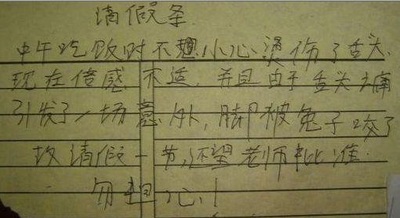 请假条
中午吃饭时不想小心烫伤了舌头
现在倍感不适,并且由于舌头痛
引发了一场意外,脚被兔子咬了
故请假一节,还望老师批准.
勿担心!